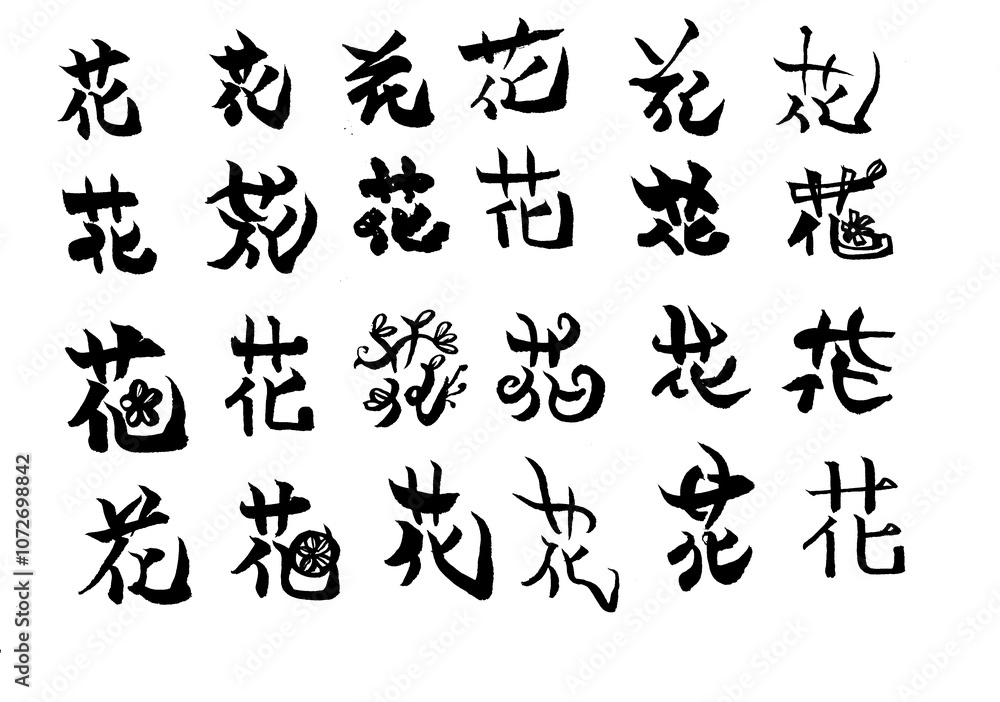 花 花 花 花 花 花
花 花 花 花 花 花
花 花 花 花 花 花
花 花 花 花 花 花
Adobe Stock | #1072698842